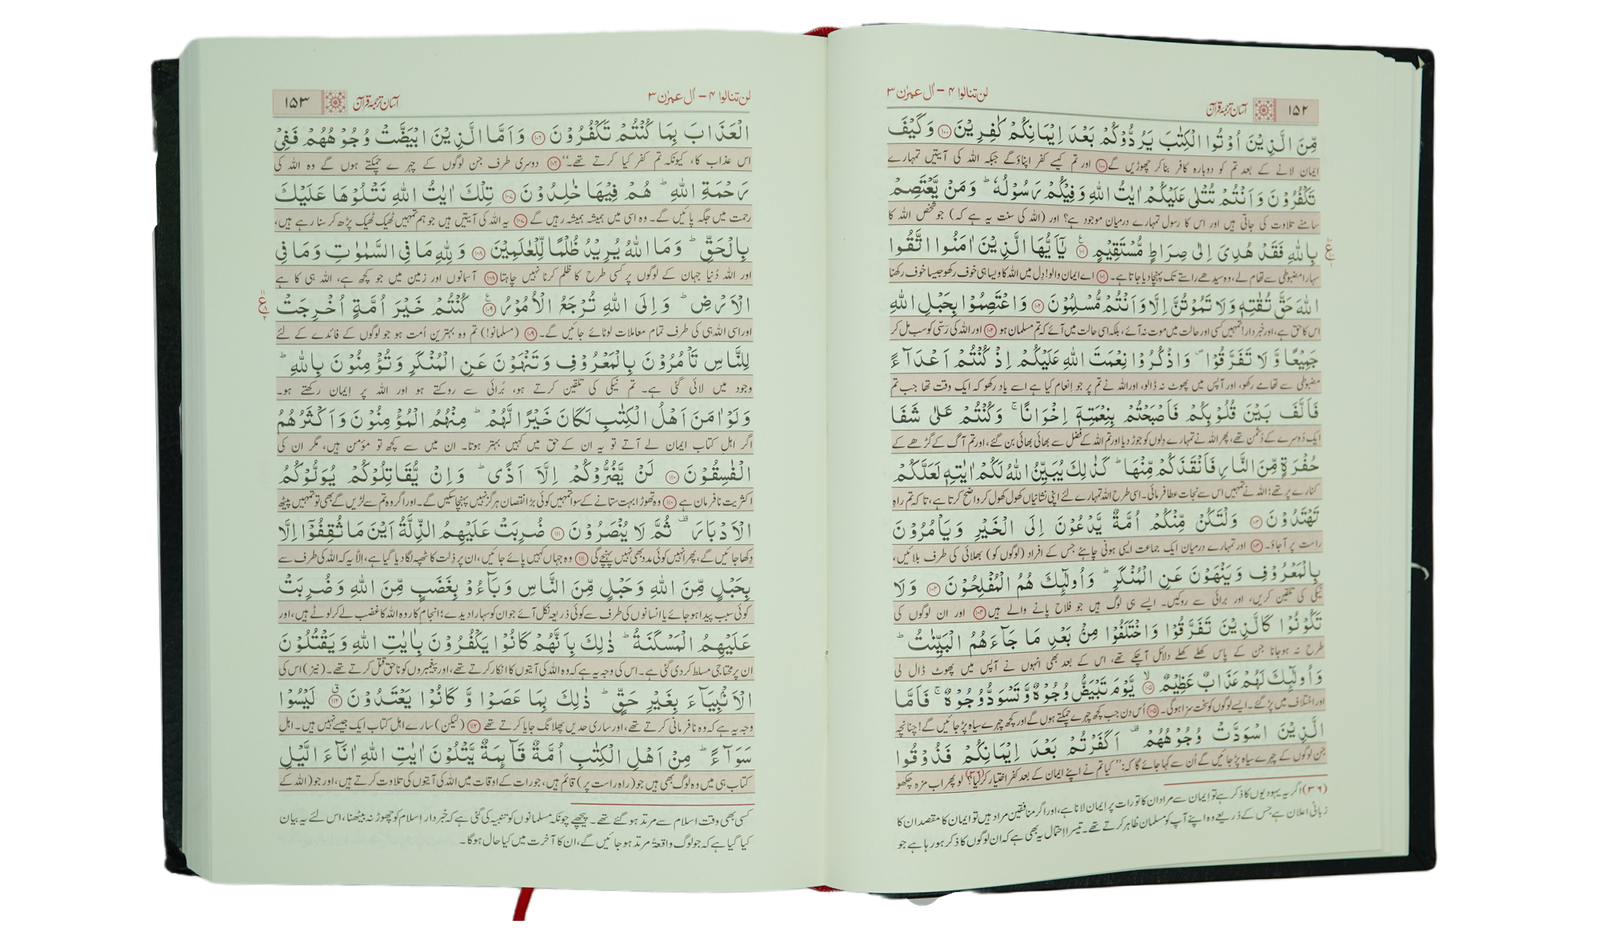 ۱۵۲ آسان ترجمۂ قرآن لن تنالوا ۴ – اٰل عمرٰن ۳
مِّنَ الَّذِيْنَ اُوْتُوا الْكِتٰبَ يَرُدُّوْكُمْ بَعْدَ اِيْمَانِكُمْ كٰفِرِيْنَ ۝۱۰۰ وَكَيْفَ
ایمان لانے کے بعد تم کو دوبارہ کافر بنا کر چھوڑیں گے ۝۱۰۰ اور تم کیسے کفر اپناؤ گے جبکہ اللہ کی آیتیں تمہارے
تَكْفُرُوْنَ وَاَنْتُمْ تُتْلٰى عَلَيْكُمْ اٰيٰتُ اللهِ وَفِيْكُمْ رَسُوْلُهٗ ؕ وَمَنْ يَّعْتَصِمْ
سامنے تلاوت کی جاتی ہیں اور اس کا رسول تمہارے درمیان موجود ہے؟ اور (اللہ کی سنت یہ ہے کہ) جو شخص اللہ کا
بِاللهِ فَقَدْ هُدِيَ اِلٰى صِرَاطٍ مُّسْتَقِيْمٍ ۝۱۰۱ يٰٓاَيُّهَا الَّذِيْنَ اٰمَنُوا اتَّقُوا
سہارا مضبوطی سے تھام لے، وہ سیدھے راستے تک پہنچا دیا جاتا ہے۔ ۝۱۰۱ اے ایمان والو! دل میں اللہ کا ویسا ہی خوف رکھو جیسا خوف رکھنا
اللهَ حَقَّ تُقٰتِهٖ وَلَا تَمُوْتُنَّ اِلَّا وَاَنْتُمْ مُّسْلِمُوْنَ ۝۱۰۲ وَاعْتَصِمُوْا بِحَبْلِ اللهِ
اس کا حق ہے، اور خبردار! تمہیں کسی اور حالت میں موت نہ آئے، بلکہ اسی حالت میں آئے کہ تم مسلمان ہو ۝۱۰۲ اور اللہ کی رسّی کو سب مل کر
جَمِيْعًا وَّلَا تَفَرَّقُوْا ۪ وَاذْكُرُوْا نِعْمَتَ اللهِ عَلَيْكُمْ اِذْ كُنْتُمْ اَعْدَآءً
مضبوطی سے تھامے رکھو، اور آپس میں پھوٹ نہ ڈالو، اور اللہ نے تم پر جو انعام کیا ہے اسے یاد رکھو کہ ایک وقت تھا جب تم
فَاَلَّفَ بَيْنَ قُلُوْبِكُمْ فَاَصْبَحْتُمْ بِنِعْمَتِهٖۤ اِخْوَانًا ۚ وَكُنْتُمْ عَلٰى شَفَا
ایک دوسرے کے دشمن تھے، پھر اللہ نے تمہارے دلوں کو جوڑ دیا اور تم اللہ کے فضل سے بھائی بھائی بن گئے، اور تم آگ کے گڑھے کے
حُفْرَةٍ مِّنَ النَّارِ فَاَنْقَذَكُمْ مِّنْهَا ؕ كَذٰلِكَ يُبَيِّنُ اللهُ لَكُمْ اٰيٰتِهٖ لَعَلَّكُمْ
کنارے پر تھے، اللہ نے تمہیں اس سے نجات عطا فرمائی۔ اسی طرح اللہ تمہارے لئے اپنی نشانیاں کھول کھول کر واضح کرتا ہے، تاکہ تم راہِ
تَهْتَدُوْنَ ۝۱۰۳ وَلْتَكُنْ مِّنْكُمْ اُمَّةٌ يَّدْعُوْنَ اِلَى الْخَيْرِ وَيَاْمُرُوْنَ
راست پر آجاؤ۔ ۝۱۰۳ اور تمہارے درمیان ایک جماعت ایسی ہونی چاہئے جس کے افراد (لوگوں کو) بھلائی کی طرف بلائیں،
بِالْمَعْرُوْفِ وَيَنْهَوْنَ عَنِ الْمُنْكَرِ ؕ وَاُولٰٓئِكَ هُمُ الْمُفْلِحُوْنَ ۝۱۰۴ وَلَا
نیکی کی تلقین کریں، اور برائی سے روکیں۔ ایسے ہی لوگ ہیں جو فلاح پانے والے ہیں ۝۱۰۴ اور ان لوگوں کی
تَكُوْنُوْا كَالَّذِيْنَ تَفَرَّقُوْا وَاخْتَلَفُوْا مِنْۢ بَعْدِ مَا جَآءَهُمُ الْبَيِّنٰتُ ؕ
طرح نہ ہو جانا جن کے پاس کھلے کھلے دلائل آچکے تھے، اس کے بعد بھی انہوں نے آپس میں پھوٹ ڈال لی
وَاُولٰٓئِكَ لَهُمْ عَذَابٌ عَظِيْمٌ ۝۱۰۵ يَّوْمَ تَبْيَضُّ وُجُوْهٌ وَّتَسْوَدُّ وُجُوْهٌ ۚ فَاَمَّا
اور اختلاف میں پڑ گئے۔ ایسے لوگوں کو سخت سزا ہوگی۔ ۝۱۰۵ اُس دن جب کچھ چہرے چمکتے ہوں گے اور کچھ چہرے سیاہ پڑ جائیں گے! چنانچہ
الَّذِيْنَ اسْوَدَّتْ وُجُوْهُهُمْ ۟ اَكَفَرْتُمْ بَعْدَ اِيْمَانِكُمْ فَذُوْقُوا
جن لوگوں کے چہرے سیاہ پڑ جائیں گے اُن سے کہا جائے گا کہ: ”کیا تم نے اپنے ایمان کے بعد کفر اختیار کر لیا؟(۳۶) لو پھر اب مزہ چکھو
(۳۶) اگر یہ یہودیوں کا ذکر ہے تو ایمان سے مراد ان کا تورات پر ایمان لانا ہے، اور اگر منافقین مراد ہیں تو ایمان کا مقصد ان کا
زبانی اعلان ہے جس کے ذریعے وہ اپنے آپ کو مسلمان ظاہر کرتے تھے۔ تیسرا احتمال یہ بھی ہے کہ ان لوگوں کا ذکر ہو رہا ہے جو
لن تنالوا ۴ – اٰل عمرٰن ۳ آسان ترجمۂ قرآن ۱۵۳
الْعَذَابَ بِمَا كُنْتُمْ تَكْفُرُوْنَ ۝۱۰۶ وَاَمَّا الَّذِيْنَ ابْيَضَّتْ وُجُوْهُهُمْ فَفِيْ
اس عذاب کا، کیونکہ تم کفر کیا کرتے تھے۔“ ۝۱۰۶ دوسری طرف جن لوگوں کے چہرے چمکتے ہوں گے وہ اللہ کی
رَحْمَةِ اللهِ ؕ هُمْ فِيْهَا خٰلِدُوْنَ ۝۱۰۷ تِلْكَ اٰيٰتُ اللهِ نَتْلُوْهَا عَلَيْكَ
رحمت میں جگہ پائیں گے۔ وہ اسی میں ہمیشہ ہمیشہ رہیں گے ۝۱۰۷ یہ اللہ کی آیتیں ہیں جو ہم تمہیں ٹھیک ٹھیک پڑھ کر سنا رہے ہیں،
بِالْحَقِّ ؕ وَمَا اللهُ يُرِيْدُ ظُلْمًا لِّلْعٰلَمِيْنَ ۝۱۰۸ وَلِلّٰهِ مَا فِي السَّمٰوٰتِ وَمَا فِي
اور اللہ دُنیا جہان کے لوگوں پر کسی طرح کا ظلم کرنا نہیں چاہتا ۝۱۰۸ آسمانوں اور زمین میں جو کچھ ہے، اللہ ہی کا ہے
الْاَرْضِ ؕ وَاِلَى اللهِ تُرْجَعُ الْاُمُوْرُ ۝۱۰۹ كُنْتُمْ خَيْرَ اُمَّةٍ اُخْرِجَتْ
اور اسی اللہ ہی کی طرف تمام معاملات لوٹائے جائیں گے۔ ۝۱۰۹ (مسلمانو!) تم وہ بہترین اُمت ہو جو لوگوں کے فائدے کے لئے
لِلنَّاسِ تَاْمُرُوْنَ بِالْمَعْرُوْفِ وَتَنْهَوْنَ عَنِ الْمُنْكَرِ وَتُؤْمِنُوْنَ بِاللهِ ؕ
وجود میں لائی گئی ہے۔ تم نیکی کی تلقین کرتے ہو، بُرائی سے روکتے ہو اور اللہ پر ایمان رکھتے ہو۔
وَلَوْ اٰمَنَ اَهْلُ الْكِتٰبِ لَكَانَ خَيْرًا لَّهُمْ ؕ مِنْهُمُ الْمُؤْمِنُوْنَ وَاَكْثَرُهُمُ
اگر اہلِ کتاب ایمان لے آتے تو یہ ان کے حق میں کہیں بہتر ہوتا۔ ان میں سے کچھ تو مؤمن ہیں، مگر ان کی
الْفٰسِقُوْنَ ۝۱۱۰ لَنْ يَّضُرُّوْكُمْ اِلَّاۤ اَذًى ؕ وَاِنْ يُّقَاتِلُوْكُمْ يُوَلُّوْكُمُ
اکثریت نافرمان ہے ۝۱۱۰ وہ تھوڑا بہت ستانے کے سوا تمہیں کوئی بڑا نقصان ہرگز نہیں پہنچا سکیں گے۔ اور اگر وہ تم سے لڑیں گے بھی تو تمہیں پیٹھ
الْاَدْبَارَ ۟ ثُمَّ لَا يُنْصَرُوْنَ ۝۱۱۱ ضُرِبَتْ عَلَيْهِمُ الذِّلَّةُ اَيْنَ مَا ثُقِفُوْۤا اِلَّا
دکھا جائیں گے، پھر انہیں کوئی مدد بھی نہیں پہنچے گی ۝۱۱۱ وہ جہاں کہیں پائے جائیں، ان پر ذلت کا ٹھپہ لگا دیا گیا ہے، الّا یہ کہ اللہ کی طرف سے
بِحَبْلٍ مِّنَ اللهِ وَحَبْلٍ مِّنَ النَّاسِ وَبَآءُوْ بِغَضَبٍ مِّنَ اللهِ وَضُرِبَتْ
کوئی سبب پیدا ہو جائے یا انسانوں کی طرف سے کوئی ذریعہ نکل آئے جو ان کو سہارا دیدے؛ انجام کار وہ اللہ کا غضب لے کر لوٹے ہیں، اور
عَلَيْهِمُ الْمَسْكَنَةُ ؕ ذٰلِكَ بِاَنَّهُمْ كَانُوْا يَكْفُرُوْنَ بِاٰيٰتِ اللهِ وَيَقْتُلُوْنَ
ان پر محتاجی مسلط کر دی گئی ہے۔ اس کی وجہ یہ ہے کہ وہ اللہ کی آیتوں کا انکار کرتے تھے، اور پیغمبروں کو ناحق قتل کرتے تھے۔ (نیز) اس کی
الْاَنْۢبِيَآءَ بِغَيْرِ حَقٍّ ؕ ذٰلِكَ بِمَا عَصَوْا وَّكَانُوْا يَعْتَدُوْنَ ۝۱۱۲ لَيْسُوْا
وجہ یہ ہے کہ وہ نافرمانی کرتے تھے، اور ساری حدیں پھلانگ جایا کرتے تھے ۝۱۱۲ (لیکن) سارے اہلِ کتاب ایک جیسے نہیں ہیں۔ اہلِ
سَوَآءً ؕ مِنْ اَهْلِ الْكِتٰبِ اُمَّةٌ قَآئِمَةٌ يَّتْلُوْنَ اٰيٰتِ اللهِ اٰنَآءَ الَّيْلِ
کتاب ہی میں وہ لوگ بھی ہیں جو (راہِ راست پر) قائم ہیں، جو رات کے اوقات میں اللہ کی آیتوں کی تلاوت کرتے ہیں، اور جو (اللہ کے
کسی بھی وقت اسلام سے مرتد ہو گئے تھے۔ پیچھے چونکہ مسلمانوں کو تنبیہ کی گئی ہے کہ خبردار اسلام کو چھوڑ نہ بیٹھنا، اس لئے یہ بیان
کیا گیا ہے کہ جو لوگ واقعۃً مرتد ہو جائیں گے، ان کا آخرت میں کیا حال ہوگا۔